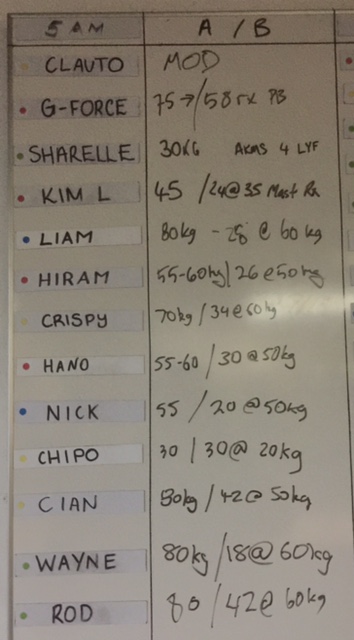 5 AM A / B
CLAUTO MOD
G-FORCE 75→/58 rx PB
SHARELLE 30KG AKAS 4 LYF
KIM L 45 /24@35 Mast Rx
LIAM 80kg - 28 @ 60 kg
HIRAM 55-60kg/26@50kg
CRISPY 70kg/34@60kg
HANO 55-60/30@50kg
NICK 55 / 20@50kg
CHIPO 30 / 30@ 20kg
CIAN 50kg/42@50kg
WAYNE 80kg/18@60kg
ROD 80 /42@ 60kg